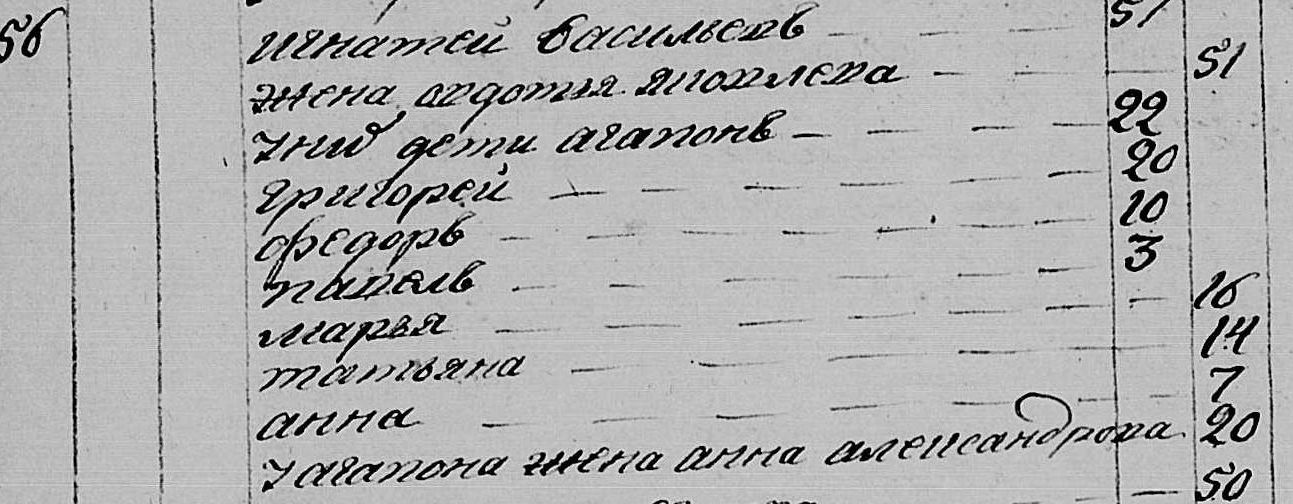 56 игнатей васильевъ 51
жена овдотья яковлева 51
у них дети агапонъ 22
григорей 20
федоръ 10
павелъ 3
марья 16
татьяна 14
анна 7
у агапона жена анна александрова 20
50